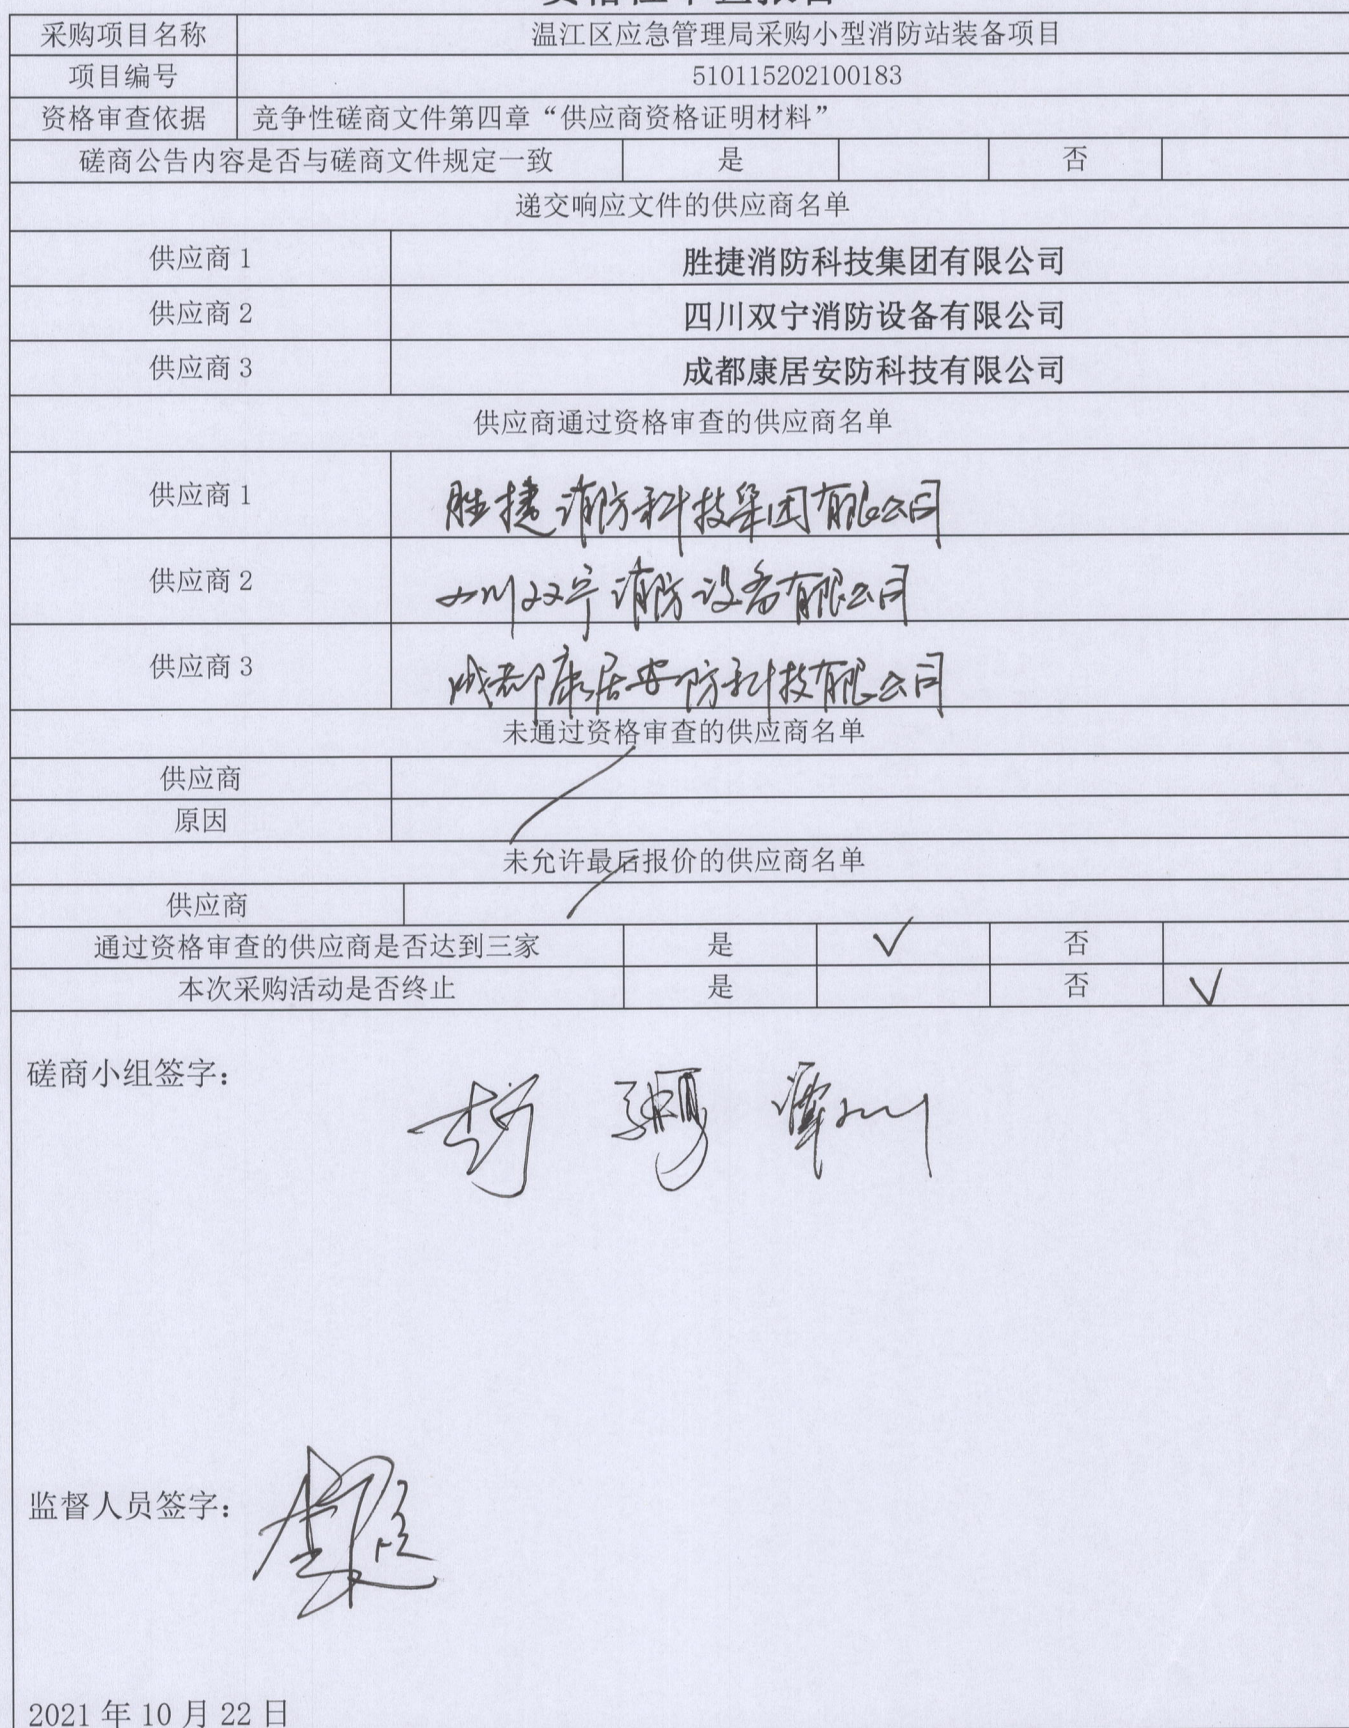 资格性审查报告
采购项目名称 温江区应急管理局采购小型消防站装备项目
项目编号 510115202100183
资格审查依据 竞争性磋商文件第四章“供应商资格证明材料”
磋商公告内容是否与磋商文件规定一致 是 否
递交响应文件的供应商名单
供应商 1 胜捷消防科技集团有限公司
供应商 2 四川双宁消防设备有限公司
供应商 3 成都康居安防科技有限公司
供应商通过资格审查的供应商名单
供应商 1 胜捷消防科技集团有限公司
供应商 2 四川双宁消防设备有限公司
供应商 3 成都康居安防科技有限公司
未通过资格审查的供应商名单
供应商
原因
未允许最后报价的供应商名单
供应商
通过资格审查的供应商是否达到三家 是 √ 否
本次采购活动是否终止 是 否 √
磋商小组签字：
监督人员签字：
2021 年 10 月 22 日